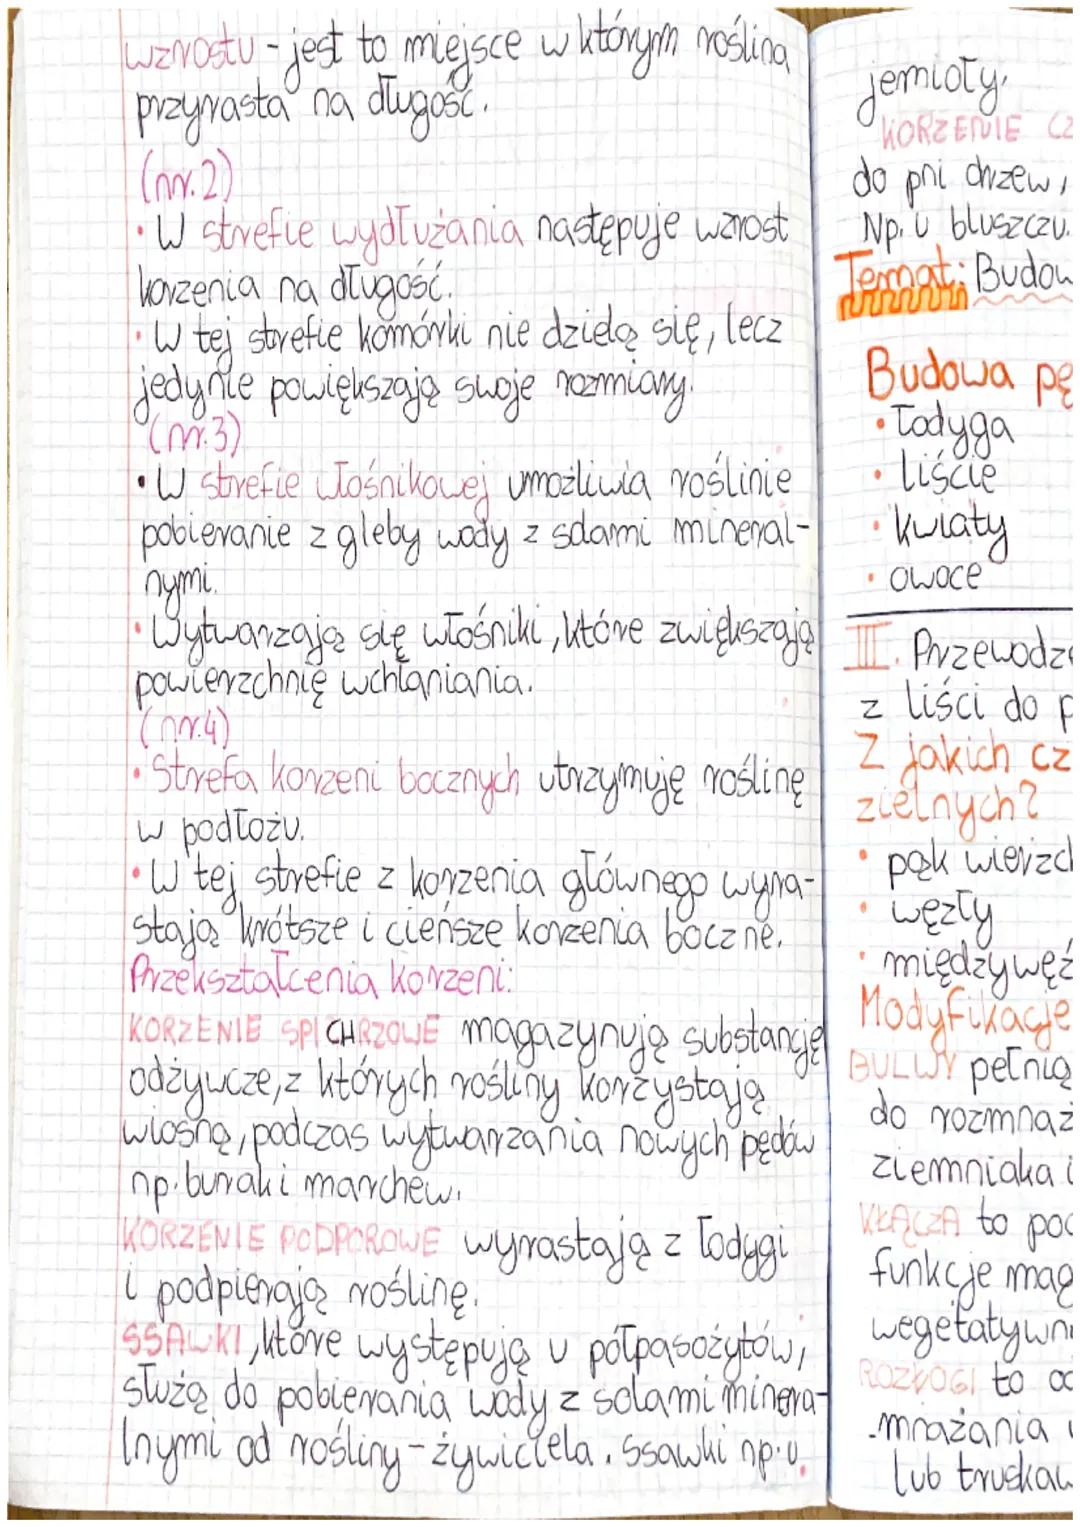 wzrostu - jest to miejsce w którym roślina
przyrasta na długość.
(nr.2)
• W strefie wydłużania następuje wzrost
korzenia na długość.
• W tej strefie komórki nie dzielą się, lecz
jedynie powiększają swoje rozmiary.
(nr.3)
• W strefie włośnikowej umożliwia roślinie
pobieranie z gleby wody z solami mineral-
nymi.
• Wytwarzają się włośniki, które zwiększają
powierzchnię wchłaniania.
(nr.4)
• Strefa korzeni bocznych utrzymuję roślinę
w podłożu.
• W tej strefie z korzenia głównego wyra-
stają krótsze i cieńsze korzenia boczne.
Przekształcenia korzeni:
KORZENIE SPICHRZOWE magazynują substancję
odżywcze, z których rośliny korzystają
wiosną, podczas wytwarzania nowych pędów
np. buraki marchew.
KORZENIE PODPOROWE wyrastają z łodygi
i podpierają roślinę.
SSAWKI, które występują u półpasożytów,
służą do pobierania wody z solami minera-
lnymi od rośliny - żywiciela. Ssawki np. u
jemioły.
KORZENIE CZ
do pni drzew,
Np. u bluszczu.
Temat: Budow
Budowa pę
• Łodyga
• liście
• kwiaty
• owoce
III. Przewodze
z liści do p
Z jakich cz
zielnych?
• pąk wierzch
• węzły
• międzywęź
Modyfikacje
BULWY pełnią
do rozmnaż
ziemniaka i
KŁĄCZA to pod
funkcje mag
wegetatywn
ROZŁOGI to od
-mnażania u
lub truskaw